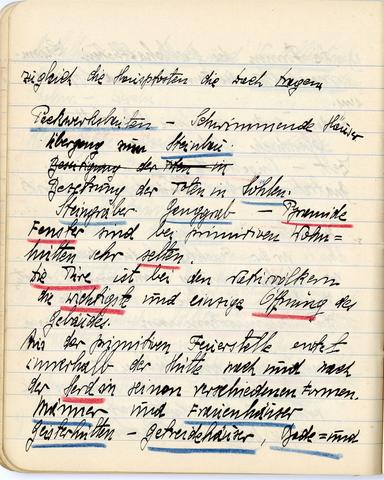 zugleich die Hauptpfosten die Dach tragen
Packwerkbauten – Schwimmende Häuser
übergang zum Steinbau
Beseitigung der Toten in
Bestattung der Toten in Höhlen.
Steingräber Ganggrab – Pyramide
Fenster sind bei primitiven Wohn=
hütten sehr selten.
Die Türe ist bei den Naturvölkern
die wichtigste und einzige Öffnung des
Gebäudes.
Aus der primitiven Feuerstelle entst
innerhalb der Hütte nach und nach
der Herd in seinen verschiedenen Formen.
Männer und Frauenhäuser
Geisterhütten – Getreidehäuser, Bade= und